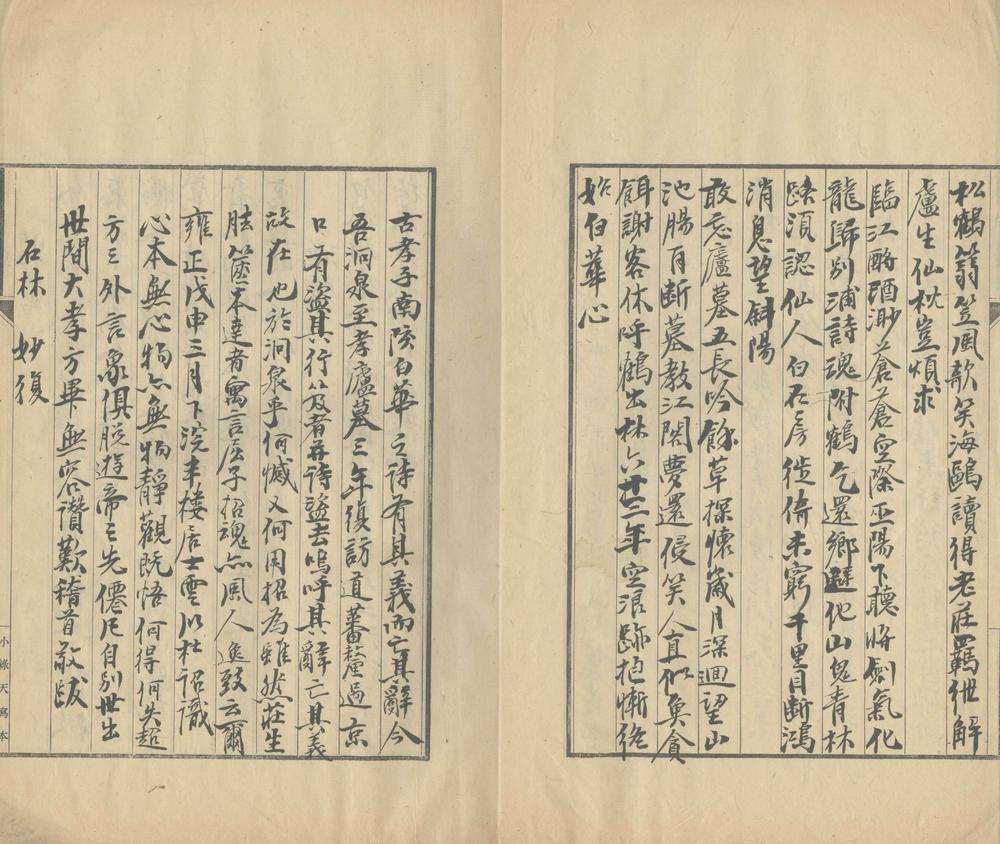 松鶴翁笠風歌笑海鷗讀得老莊羈紲解
盧生仙枕豈煩求
臨江酹酒渺蒼蒼空際巫陽下聽將劍氣化
龍歸別浦詩魂附鶴乞還鄉避他山鬼青林
路須認仙人白石房徙倚未窮千里目斷鴻
消息望斜陽
敢忘廬墓五長吟餘草探懷歲月深迴望山
池腸百斷墓教江關夢還侵笑人真似魚貪
餌謝客休呼鶴出林六十三年空浪跡抱慚終
始白華心
古孝子南陔白華之詩有其義而亡其辭今
吾洞泉至孝廬墓三年後訪道蕃釐過京
口有盜其行笈者并詩盜去嗚呼其辭亡其義
故在也於洞泉乎何憾又何用招為雖然莊生
胠篋本達者寓言屈子招魂亦風人逸致云爾
雍正戊申三月下浣半樓居士雲川杜詔識
心本無心物亦無物靜觀既悟何得何失超
方之外言象俱脫遊帝之先僊凡自別世出
世間大孝方畢無容讚歎稽首敬跋
石林 妙復
小綠天寫本